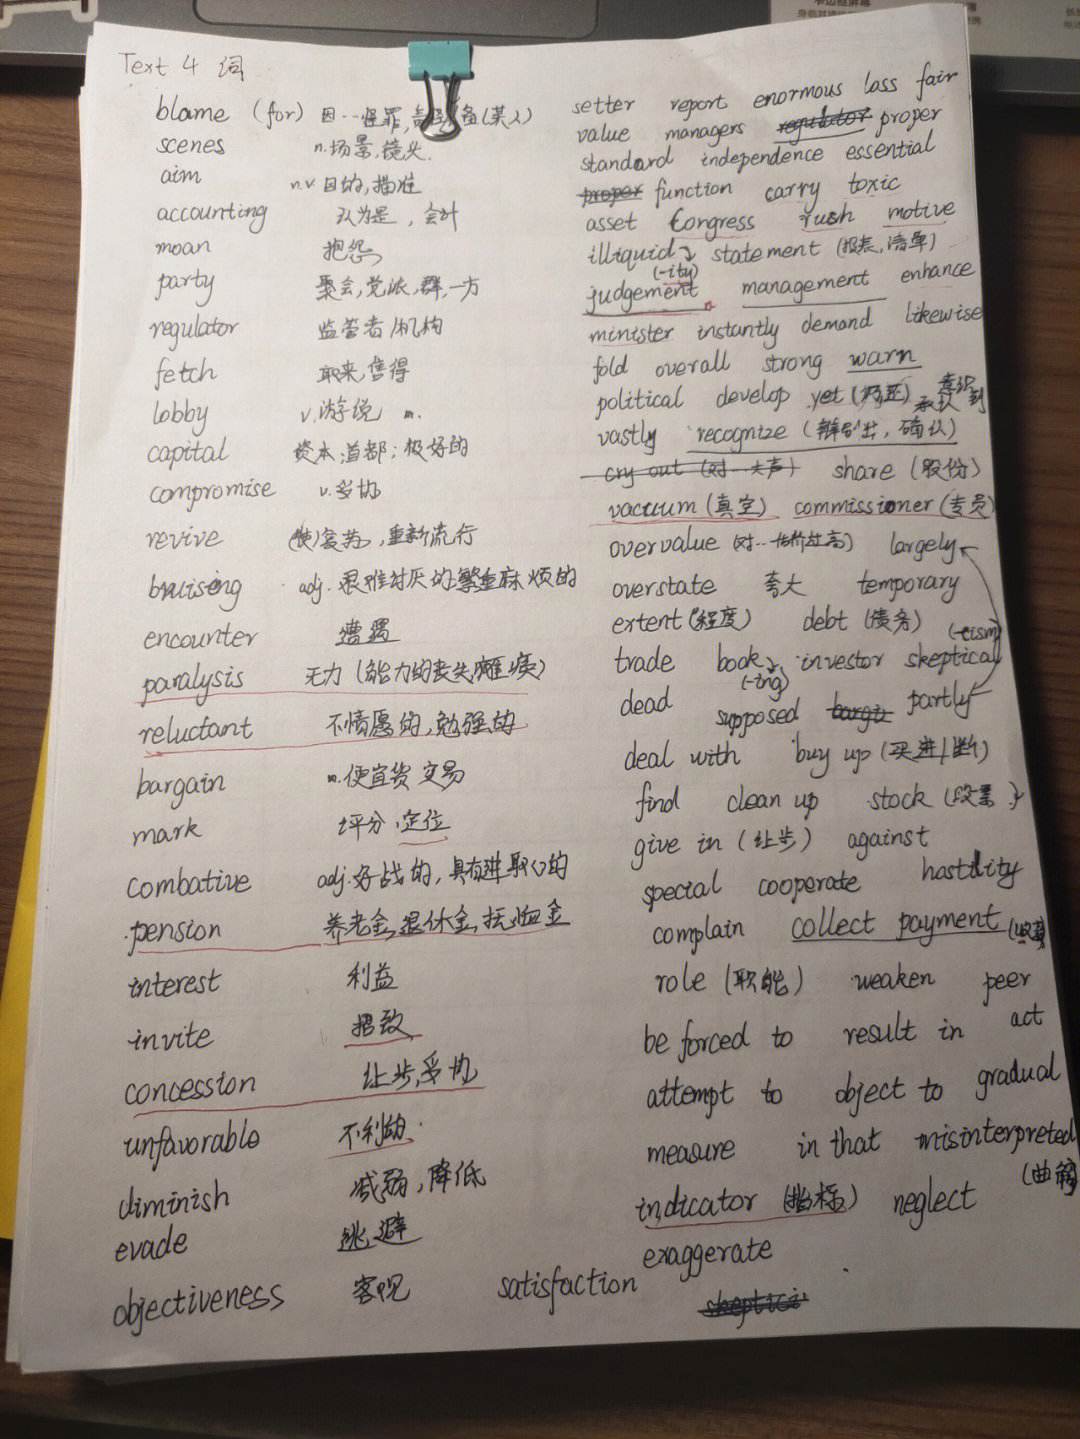 Text 4 词
blame (for) 因…怪罪,
scenes n.场景,镜头.
aim n.v 目的,描准
accounting 认为是，会计
moan 抱怨
party 聚会,党派,群,一方
regulator 监管者/机构
fetch 取来,售得
lobby v.游说 n.
capital 资本;首都;极好的
compromise v.妥协
revive (使)复苏,重新流行
bruising adj.
encounter 遭遇
paralysis 无力 (能力的丧失,瘫痪)
reluctant 不情愿的,勉强的
bargain n.便宜货 交易
mark 评分,定位
combative adj.好战的,具有进取心的
pension 养老金,退休金,抚恤金
interest 利益
invite 招致
concession 让步,妥协
unfavorable 不利的.
diminish 减弱,降低
evade 逃避
objectiveness 客观 satisfaction
setter report enormous loss fair
value managers regulator proper
standard independence essential
proper function carry toxic
asset Congress rush motive
illiquid statement (报表,清单)
(-ity)
judgement management enhance
minister instantly demand likewise
fold overall strong warn
political develop yet 意识到
vastly recognize (辩别出,确认) 承认
cry out (对…大声) share (股份)
vacuum (真空) commissioner (专员)
overvalue (对…估价过高) largely
overstate 夸大 temporary
extent (程度) debt (债务) (-cism)
trade book investor skeptical
(-ing)
dead supposed partly
deal with buy up (买进/断)
find clean up stock (股票)
give in (让步) against
special cooperate hostility
complain collect payment
role (职能) weaken peer
be forced to result in act
attempt to object to gradual
measure in that misinterpreted
(曲解)
indicator (指标) neglect
exaggerate